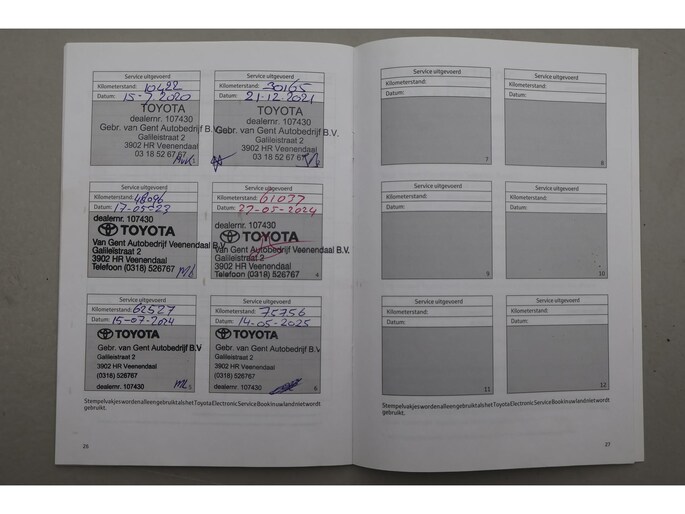 Service uitgevoerd
Kilometerstand: 10422
Datum: 15-7-2020
TOYOTA
dealernr. 107430
Gebr. van Gent Autobedrijf B.V.
Galileistraat 2
3902 HR Veenendaal
03 18 52 67 67
Service uitgevoerd
Kilometerstand: 30165
Datum: 21-12-2021
TOYOTA
dealernr. 107430
Gebr. van Gent Autobedrijf B.V.
Galileistraat 2
3902 HR Veenendaal
03 18 52 67 67
Service uitgevoerd
Kilometerstand: 48096
Datum: 17-05-23
dealernr. 107430
TOYOTA
Van Gent Autobedrijf Veenendaal B.V.
Galileïstraat 2
3902 HR Veenendaal
Telefoon (0318) 526767
Service uitgevoerd
Kilometerstand: 61097
Datum: 27-05-2024
dealernr. 107430
TOYOTA
Van Gent Autobedrijf Veenendaal B.V.
Galileïstraat 2
3902 HR Veenendaal
Telefoon (0318) 526767
4
Service uitgevoerd
Kilometerstand: 62527
Datum: 15-07-2024
TOYOTA
Gebr. van Gent Autobedrijf B.V
Galileistraat 2
3902 HR Veenendaal
(0318) 526767
dealernr. 107430
5
Service uitgevoerd
Kilometerstand: 75756
Datum: 14-05-2025
TOYOTA
Gebr. van Gent Autobedrijf B.V
Galileistraat 2
3902 HR Veenendaal
(0318) 526767
dealernr. 107430
6
Stempelvakjes worden alleen gebruikt als het Toyota Electronic Service Book in uw land niet wordt
gebruikt.
26
Service uitgevoerd
Kilometerstand:
Datum:
7
Service uitgevoerd
Kilometerstand:
Datum:
8
Service uitgevoerd
Kilometerstand:
Datum:
9
Service uitgevoerd
Kilometerstand:
Datum:
10
Service uitgevoerd
Kilometerstand:
Datum:
11
Service uitgevoerd
Kilometerstand:
Datum:
12
Stempelvakjes worden alleen gebruikt als het Toyota Electronic Service Book in uw land niet wordt
gebruikt.
27